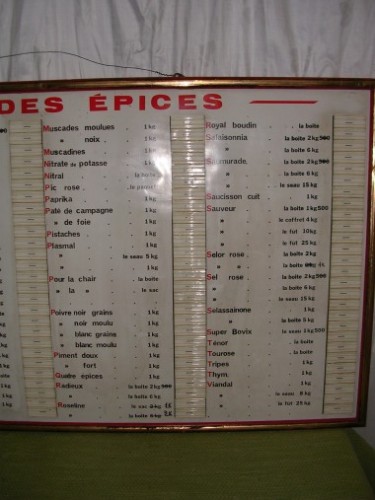 DES ÉPICES
Muscades moulues . 1 kg
» noix . . 1 kg
Muscadines . . 1 kg
Nitrate de potasse . 1 kg
Nitral . . la boîte
Pic rose . . le panier
Paprika . . 1 kg
Paté de campagne . 1 kg
» de foie . . 1 kg
Pistaches . . 1 kg
Plasmal . . 1 kg
» . . le seau 5 kg
» . . 1 kg
Pour la chair . la boîte
» la » . le sac
Poivre noir grains . 1 kg
» noir moulu . 1 kg
» blanc grains . 1 kg
» blanc moulu . 1 kg
Piment doux . 1 kg
» fort . 1 kg
Quatre épices . 1 kg
Radieux . la boîte 2 kg
» . la boîte 6 kg
Roseline . le sac
Royal boudin . la boîte
Salaisonnia . la boîte 2 kg 500
» . la boîte 6 kg
Saumurade . la boîte 2 kg 500
» . la boîte 6 kg
» . le seau 18 kg
Saucisson cuit . 1 kg
Sauveur . la boîte 1 kg 500
» . le coffret 4 kg
» . le fut 10 kg
» . le fut 25 kg
Selor rose . la boîte 2 kg
» . la boîte
Sel rose . la boîte 2 kg 500
» . la boîte 6 kg
» . le seau 15 kg
Selassaisonne . 1 kg
» . la boîte 5 kg
Super Bovix . le seau 1 kg 500
Ténor . la boîte
Tourose . la boîte
Tripes . 1 kg
Thym. . 1 kg
Viandal . 1 kg
» . le seau 8 kg
» . le fut 25 kg